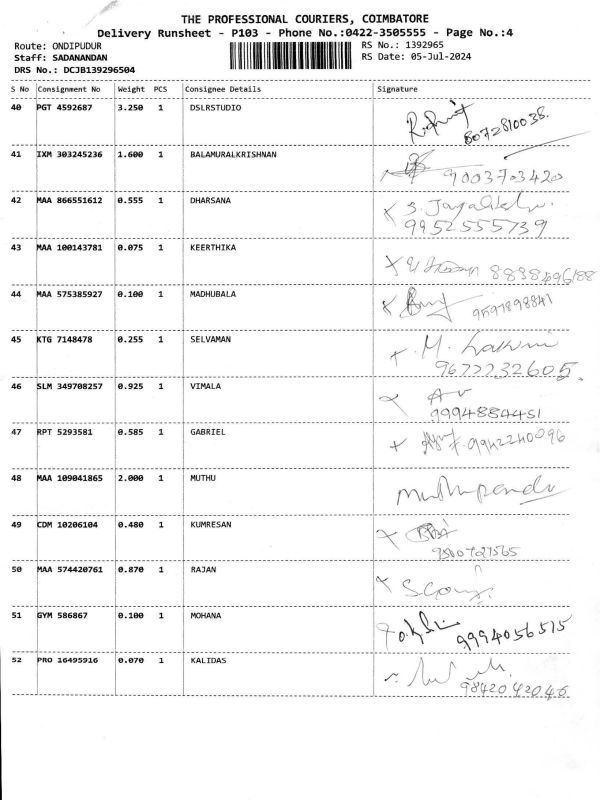 THE PROFESSIONAL COURIERS, COIMBATORE
Delivery Runsheet - P103 - Phone No.:0422-3505555 - Page No.:4
Route: ONDIPUDUR
RS No.: 1392965
Staff: SADANANDAN
RS Date: 05-Jul-2024
DRS No.: DCJB139296504
S No Consignment No Weight PCS Consignee Details Signature
40 PGT 4592687 3.250 1 DSLRSTUDIO
8072810038.
41 IXM 303245236 1.600 1 BALAMURALKRISHNAN
9003703420
42 MAA 866551612 0.555 1 DHARSANA
9952555739
43 MAA 100143781 0.075 1 KEERTHIKA
8838496188
44 MAA 575385927 0.100 1 MADHUBALA
9597898841
45 KTG 7148478 0.255 1 SELVAMAN
9677232605.
46 SLM 349708257 0.925 1 VIMALA
9994884451
47 RPT 5293581 0.585 1 GABRIEL
9942240096
48 MAA 109041865 2.000 1 MUTHU
49 CDM 10206104 0.480 1 KUMRESAN
50 MAA 574420761 0.870 1 RAJAN
51 GYM 586867 0.100 1 MOHANA
9994056515
52 PRO 16495916 0.070 1 KALIDAS
9842042046